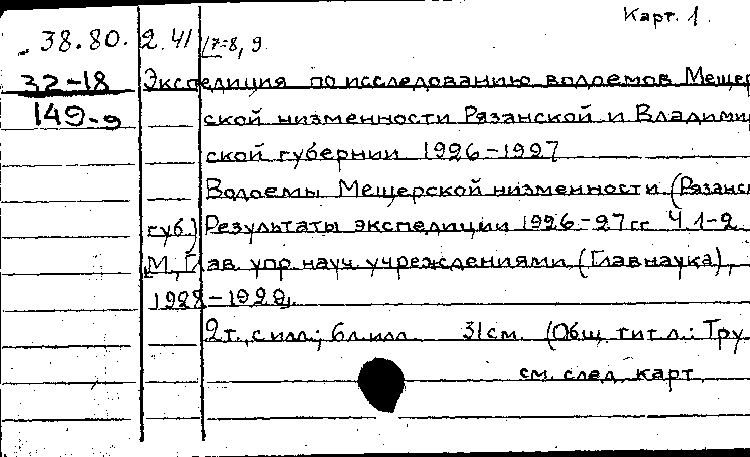 Карт. 1
38.80. 2.41 [7=8, 9
32-18 Экспедиция по исследованию водоемов Мещер
149-9 ской низменности Рязанской и Владимир
ской губернии 1926-1927
Водоемы Мещерской низменности (Рязанс
губ.) Результаты экспедиции 1926-27 гг Ч 1-2
М., Глав. упр науч. учреждениями (Главнаука),
1928-1929.
2 т., с илл.; 6 л. илл. 31 см. (Общ тит л.: Тру
см. след карт